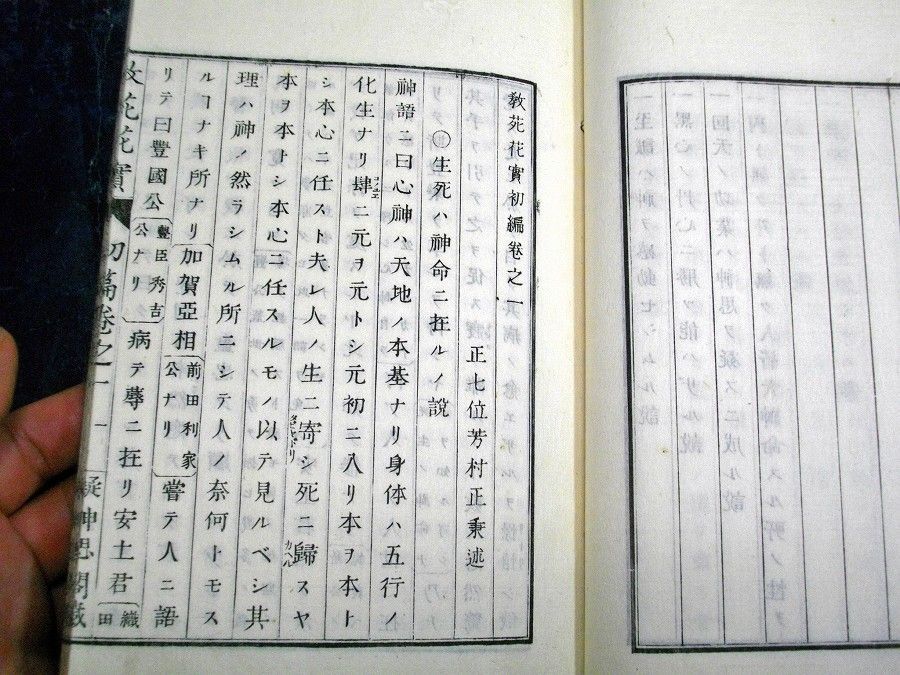 教苑花實初編卷之一
正七位芳村正秉述
○生死ハ神命ニ在ルノ說
神語ニ曰心神ハ天地ノ本基ナリ身体ハ五行ノ
化生ナリ肆ニ元ヲ元トシ元初ニ入リ本ヲ本ト
シ本心ニ任スト夫レ人ノ生ニ寄シ死ニ歸スヤ
本ヲ本トシ本心ニ任スルモノ以テ見ルベシ其
理ハ神ノ然ラシムル所ニシテ人ノ奈何トモス
ルヿナキ所ナリ加賀亞相前田利家公ナリ嘗テ人ニ語
リテ曰豐國公豐臣秀吉公ナリ病テ蓐ニ在リ安土君織田
教苑花實 初篇卷之一 一 凝神思閣藏